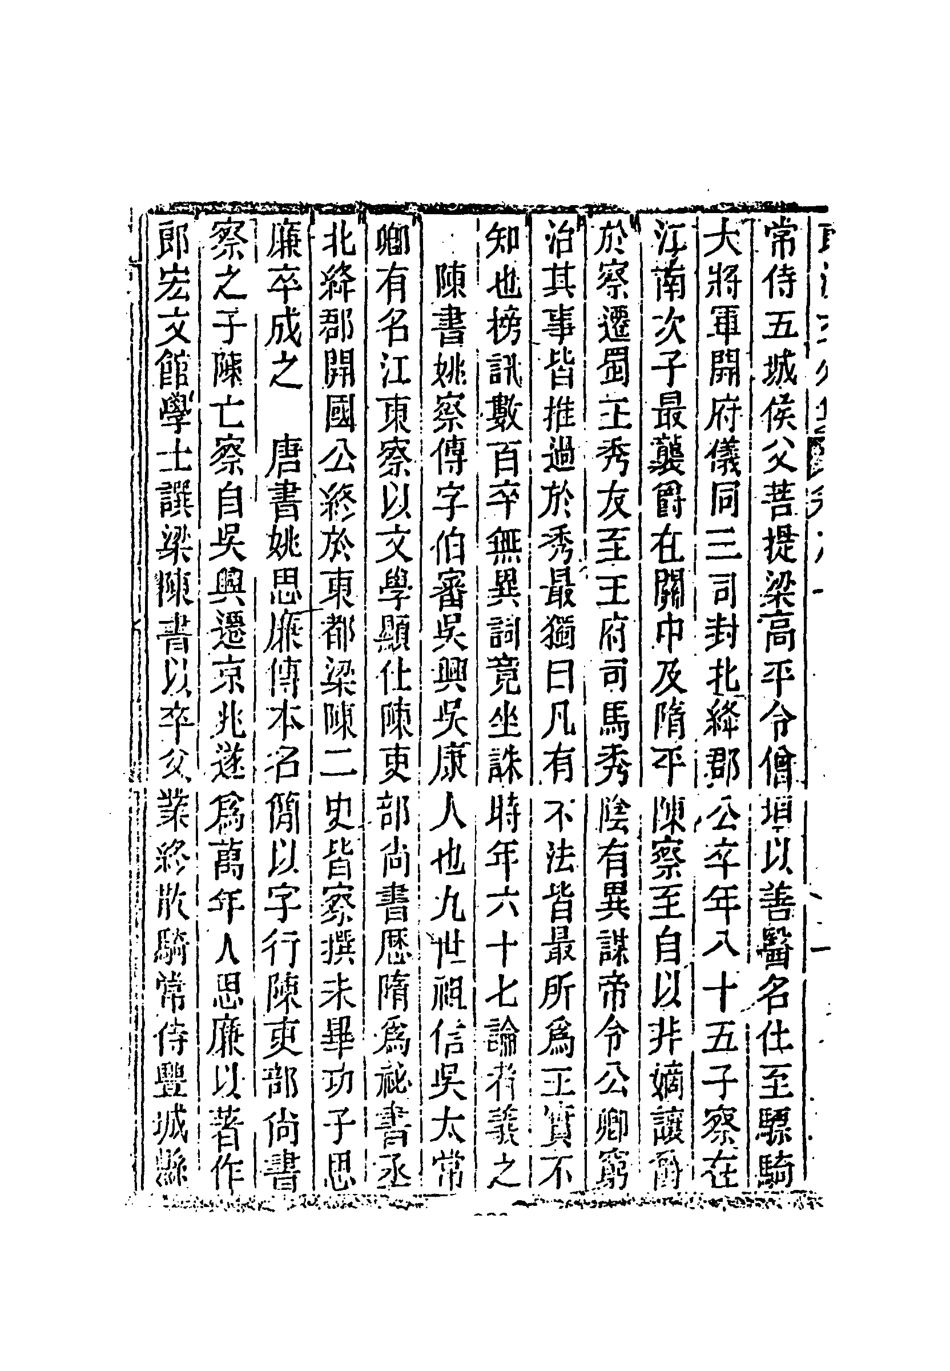 常侍五城侯父菩提梁高平令僧垣以善醫名仕至驃騎
大將軍開府儀同三司封北絳郡公卒年八十五子察在
江南次子最襲爵在關中及隋平陳察至自以非嫡讓爵
於察遷蜀王秀友至王府司馬秀陰有異謀帝令公卿窮
治其事皆推過於秀最獨曰凡有不法皆最所爲王實不
知也榜訊數百卒無異詞竟坐誅時年六十七論者義之
陳書姚察傳字伯審吳興吳康人也九世祖信吳太常
卿有名江東察以文學顯仕陳吏部尚書歷隋爲祕書丞
北絳郡開國公終於東都梁陳二史皆察撰未畢功子思
廉卒成之　唐書姚思廉傳本名簡以字行陳吏部尚書
察之子陳亡察自吳興遷京兆遂爲萬年人思廉以著作
郎宏文館學士譔梁陳書以卒父業終散騎常侍豐城縣